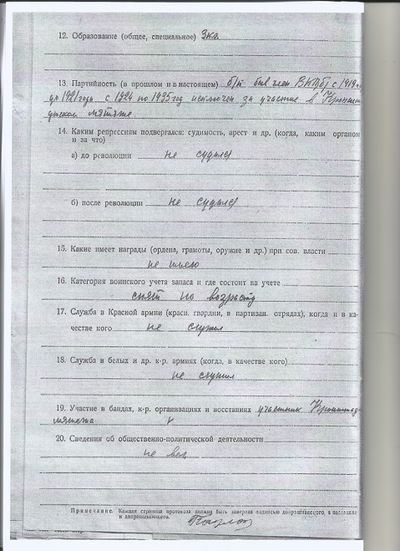 12. Образование (общее, специальное) 3 кл
13. Партийность (в прошлом и в настоящем) б/п был член ВКП(б) с 1919 г.
до 1921 года с 1924 по 1935 год исключен за участие в Кронштад-
дтском мятеже
14. Каким репрессиям подвергался: судимость, арест и др. (когда, каким органом
и за что)
а) до революции не судился
б) после революции не судился
15. Какие имеет награды (ордена, грамоты, оружие и др.) при сов. власти
не имею
16. Категория воинского учета запаса и где состоит на учете
снят по возрасту
17. Служба в Красной армии (красн. гвардии, в партизан. отрядах), когда и в ка-
честве кого не служил
18. Служба в белых и др. к-р. армиях (когда, в качестве кого)
не служил
19. Участие в бандах, к-р. организациях и восстаниях участник Кроншт
мятежа
20. Сведения об общественно-политической деятельности
не вел
Примечание. Каждая страница протокола должна быть заверена подписью допрашиваемого, а последняя
и допрашивающего.